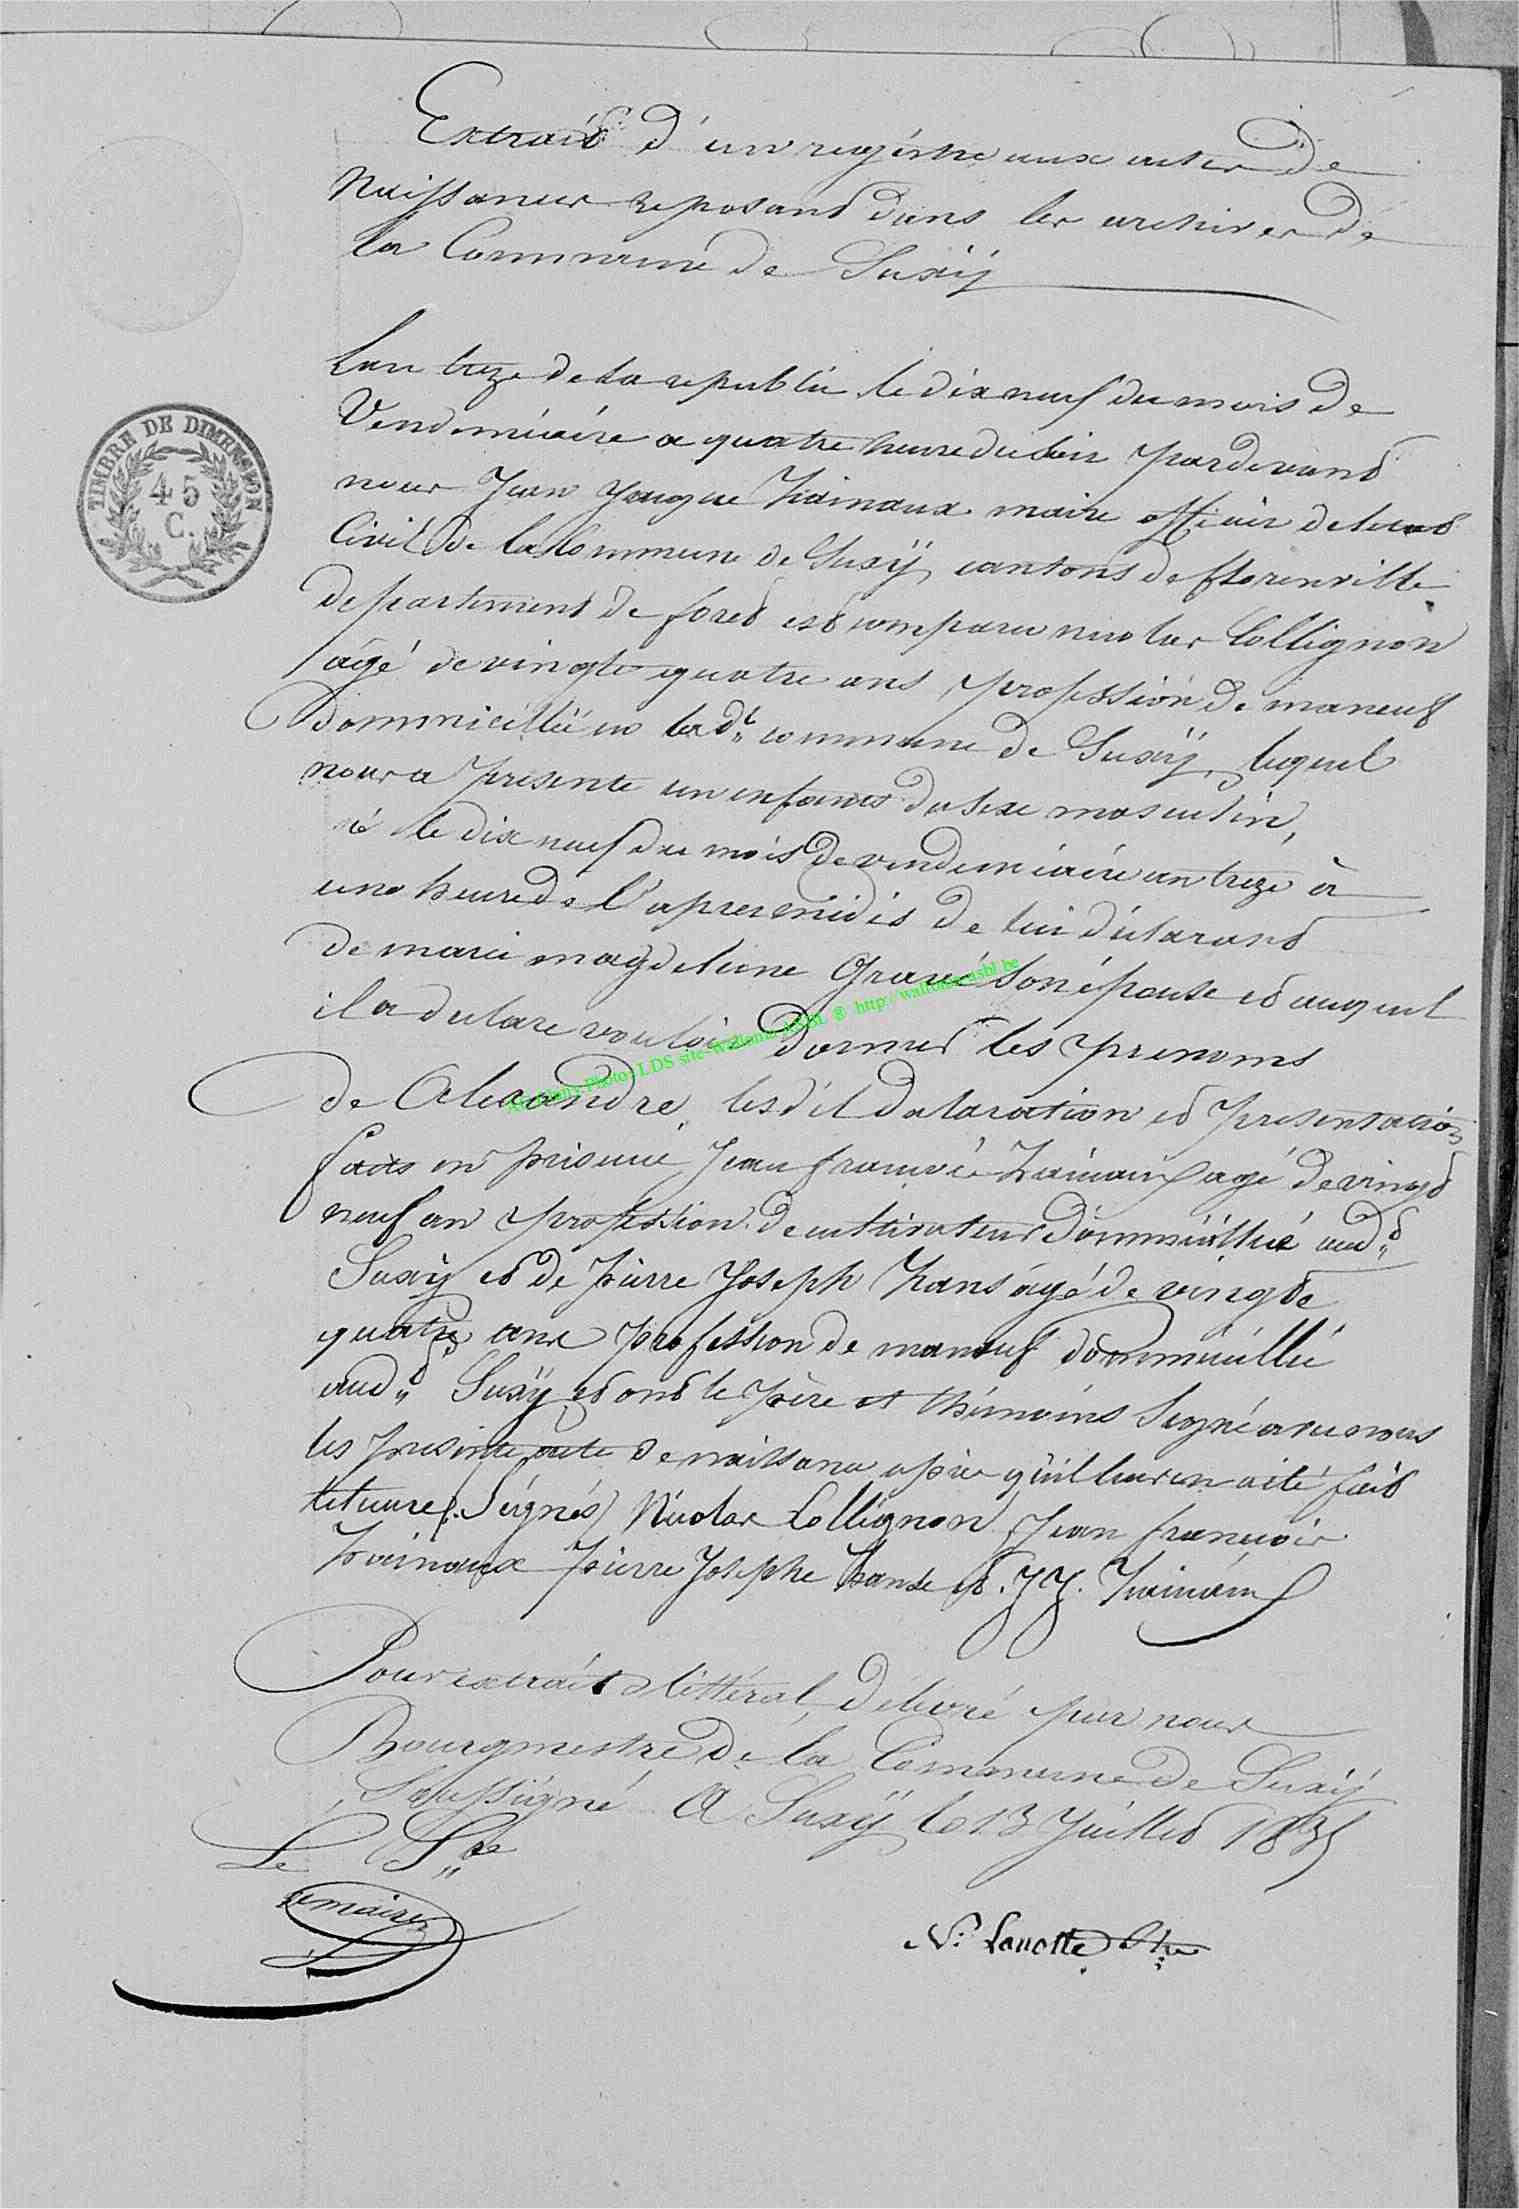 Extrait d'unregistre aux actes de
Naissances reposant dans les archives de
la Commune de Suxÿ
Lan treze de la republic le dix neuf du mois de
Vendemiaire a quatre heure du soir pardevant
nous Jean Jacque hainaux maire officier deletat
Civil de la Commune de Suxÿ, cantons de florenville
departement de foret est comparu nicolas Collignon
âgé de vingte quatre ans profession de maneuf
dommicillié en lad.te commune de Suxÿ, lequel
nous a presente un enfant du sexe masculin,
né le dix neuf du mois de vendemiaire an treze à
une heure de l'apresmidis de lui déclarant
de marie magdeleine Gravé son épouse et auquel
il a declare vouloir donner les prenoms
de Alexandre, lesdit declaration et presentation
faits en présence Jean françois hainaux agé de vingt
neuf an profession de cultivateur dommicillié aud.t
Suxÿ et de pierre Joseph hans âgé de vingte
quatre ans profession de maneuf dommicillié
aud.t Suxÿ et ont le père et thémoins Signé avec nous
les presente acte de naissance après qu'il leur en a été fait
lecture (Signés) Nicolas Collignon Jean françois
hainaux pierre Josephe hanse et J.J. hainaux
Pour extrait littéral, délivré par nous
Bourgmestre de la Commune de Suxÿ
Soussigné A Suxÿ le 13 Juillet 1835
Le S.re
Lemaire
N. Lanotte
TIMBRE DE DIMENSION
45
C.
Photo LDS site-wallonia ASBL ® http://wallonia-asbl.be